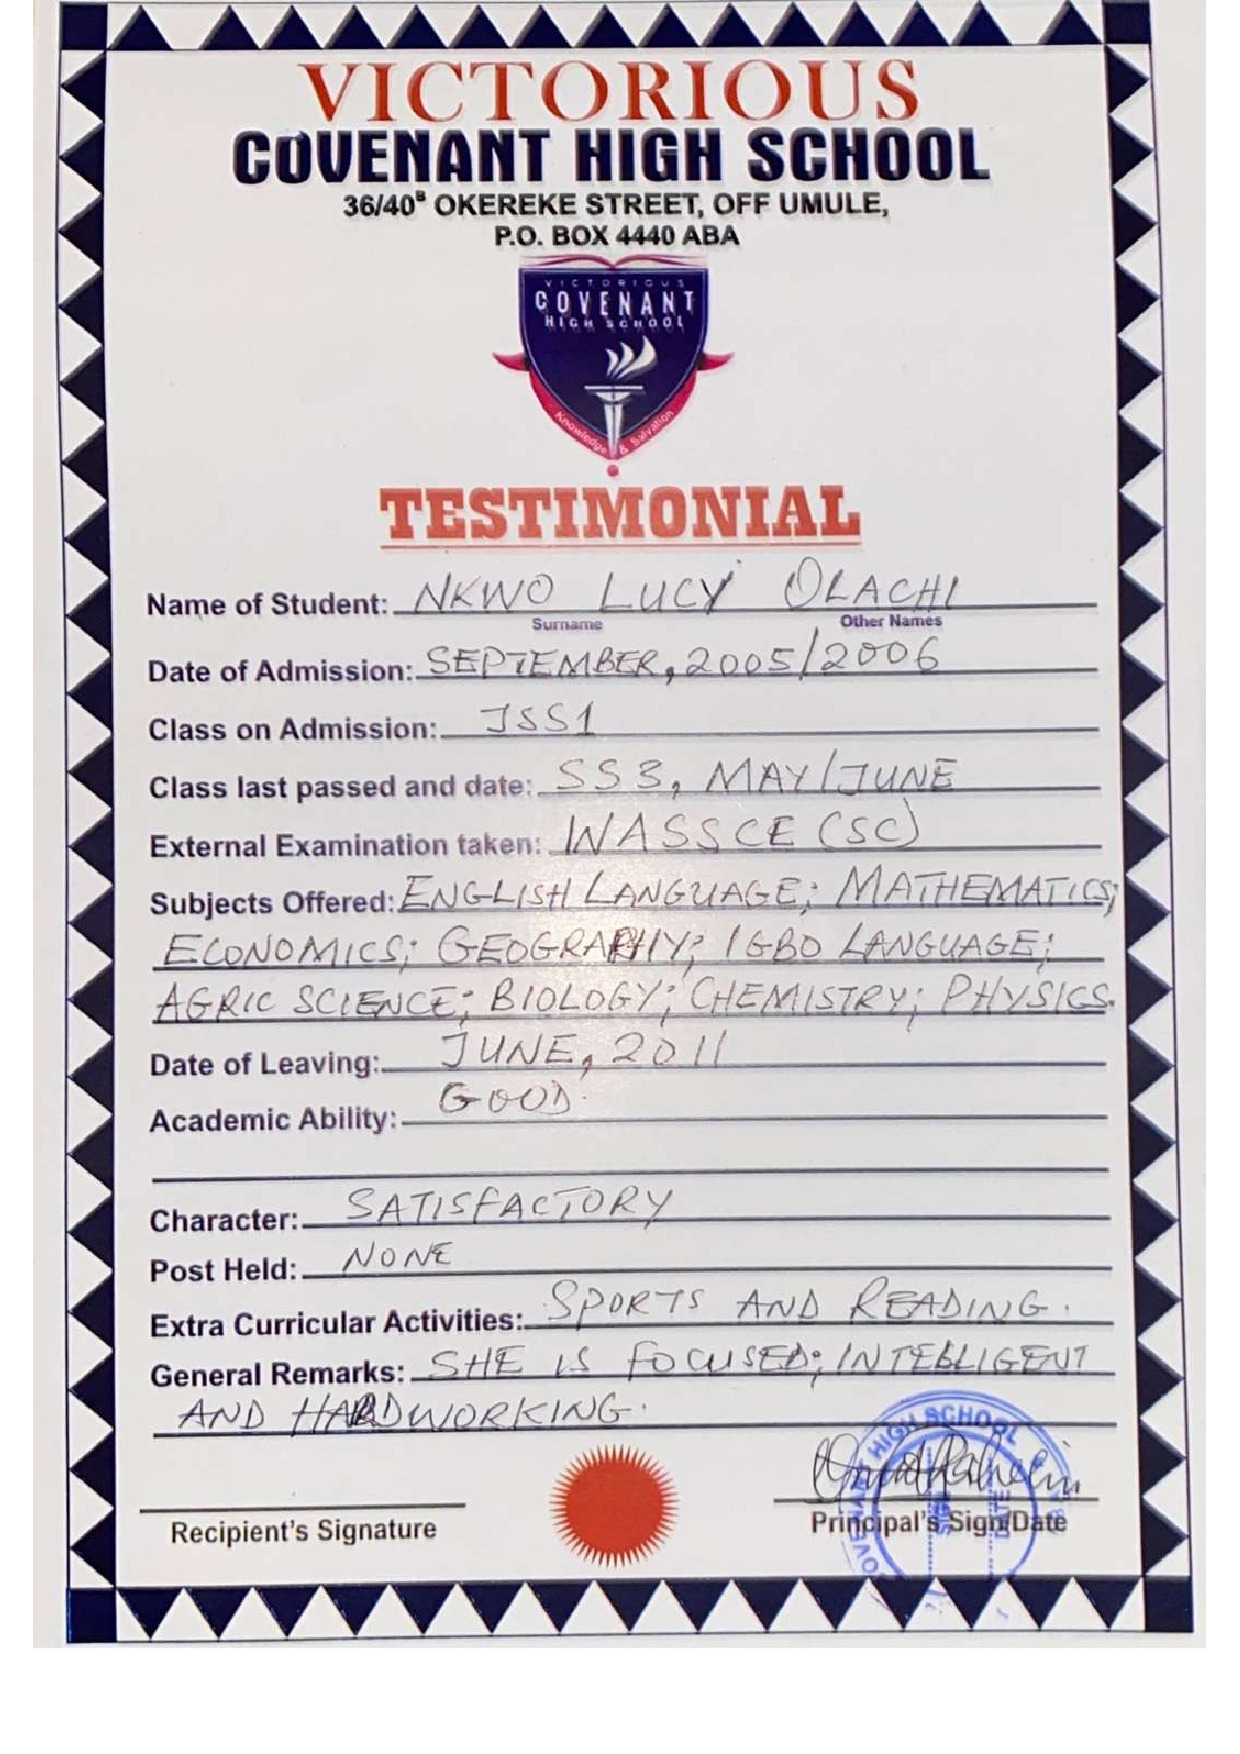 VICTORIOUS
COVENANT HIGH SCHOOL
36/40B OKEREKE STREET, OFF UMULE,
P.O. BOX 4440 ABA
VICTORIOUS
COVENANT
HIGH SCHOOL
Knowledge & Salvation
TESTIMONIAL
Name of Student: NKWO LUCY OLACHI
Surname Other Names
Date of Admission: SEPTEMBER, 2005/2006
Class on Admission: JSS1
Class last passed and date: SS3, MAY/JUNE
External Examination taken: WASSCE (SC)
Subjects Offered: ENGLISH LANGUAGE; MATHEMATICS;
ECONOMICS; GEOGRAPHY; IGBO LANGUAGE;
AGRIC SCIENCE; BIOLOGY; CHEMISTRY; PHYSICS.
Date of Leaving: JUNE, 2011
Academic Ability: GOOD.
Character: SATISFACTORY
Post Held: NONE
Extra Curricular Activities: SPORTS AND READING.
General Remarks: SHE IS FOCUSED; INTELLIGENT
AND HARDWORKING.
COVENANT HIGH SCHOOL
SIGN
DATE
Recipient's Signature Principal's Sign/Date